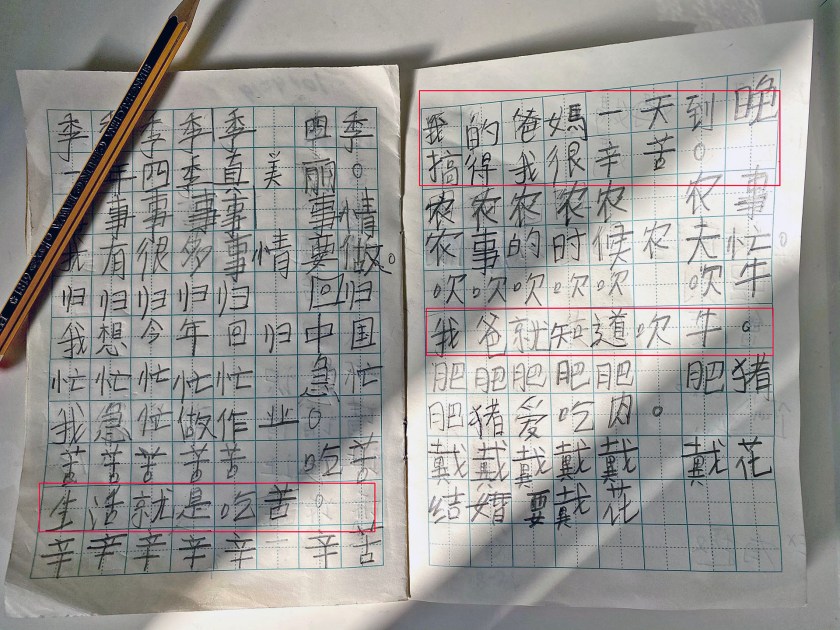 季季季季季 四季。
一年四季真美丽
事事事事 事情
我有很多事情要做。
归归归归归 回归
我想今年回归中国
忙忙忙忙忙 急忙
我急忙做作业。
苦苦苦苦苦 吃苦
生活就是吃苦。
辛辛辛辛辛 辛苦
我的爸媽一天到晚
搞得我很辛苦。
农农农农农 农事
农事的时候农夫忙。
吹吹吹吹吹 吹牛
我爸就知道吹牛。
肥肥肥肥肥 肥猪
肥猪爱吃肉。
戴戴戴戴戴 戴花
结婚要戴花